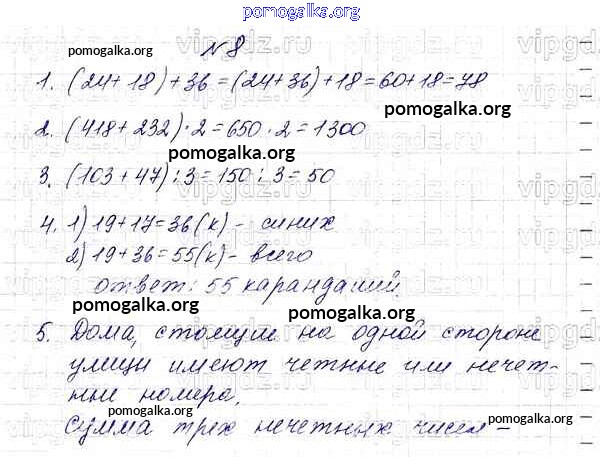 pomogalka.org
№8
pomogalka.org
1. (24+18)+36=(24+36)+18=60+18=78
pomogalka.org
2. (418+232)·2=650·2=1300
pomogalka.org
3. (103+47):3=150:3=50
pomogalka.org
4. 1) 19+17=36(к) - синих
2) 19+36=55(к) - всего
ответ: 55 карандашей
pomogalka.org
pomogalka.org
5. Дома, стоящие на одной стороне
pomogalka.org
улицы имеют четные или нечет-
ные номера.
pomogalka.org
pomogalka.org
Сумма трех нечетных чисел -
vipgdz.ru